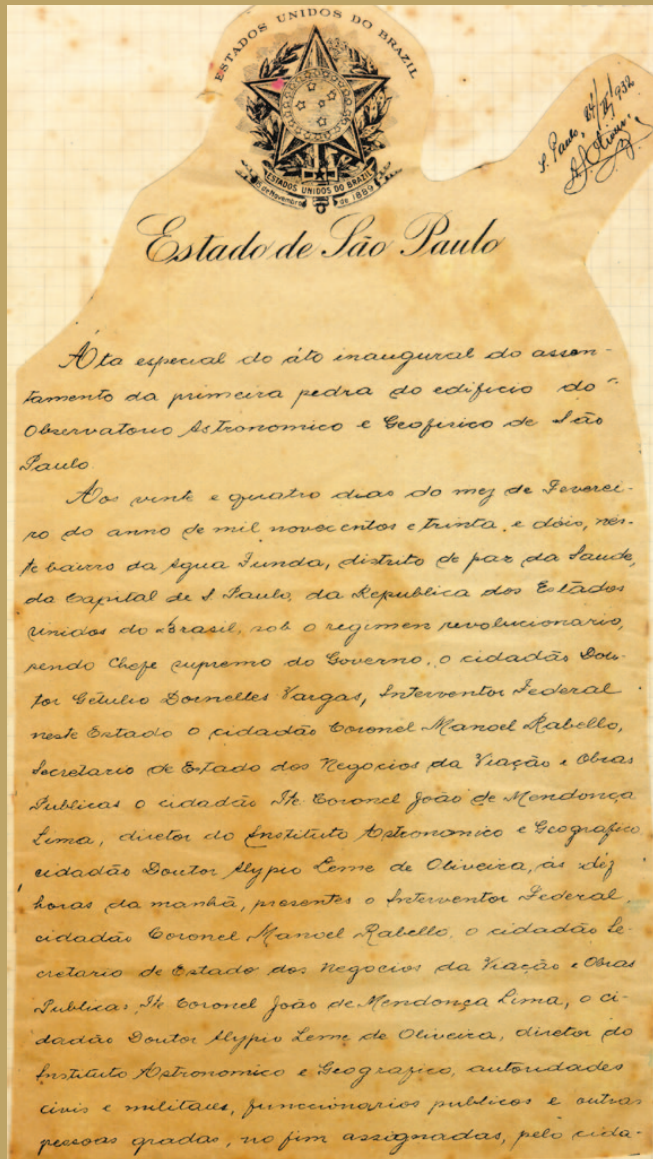 ESTADOS UNIDOS DO BRAZIL
ESTADOS UNIDOS DO BRAZIL
15 de Novembro de 1889
S. Paulo, 24/II/932
Estado de São Paulo
Áta especial do áto inaugural do assen-
tamento da primeira pedra do edificio do
Observatorio Astronomico e Geofisico de São
Paulo.
Aos vinte e quatro dias do mez de Feverei-
ro do anno de mil novecentos e trinta e dois, nes-
te bairro da Agua Funda, distrito de paz da Saude,
da Capital de S. Paulo, da Republica dos Estados
Unidos do Brasil, sob o regimen revolucionario,
sendo Chefe supremo do Governo, o cidadão Dou-
tor Getulio Dornelles Vargas, Interventor Federal
neste Estado o cidadão Coronel Manoel Rabello,
Secretario de Estado dos Negocios da Viação e Obras
Publicas o cidadão Tte Coronel João de Mendonça
Lima, diretor do Instituto Astronomico e Geografico
cidadão Doutor Alypio Leme de Oliveira, ás dez
horas da manhã, presentes o Interventor Federal
cidadão Coronel Manoel Rabello, o cidadão Se-
cretario de Estado dos Negocios da Viação e Obras
Publicas, Tte Coronel João de Mendonça Lima, o ci-
dadão Doutor Alypio Leme de Oliveira, diretor do
Instituto Astronomico e Geografico, autoridades
civis e militares, funccionarios publicos e outras
pessoas gradas, no fim assignadas, pelo cida-